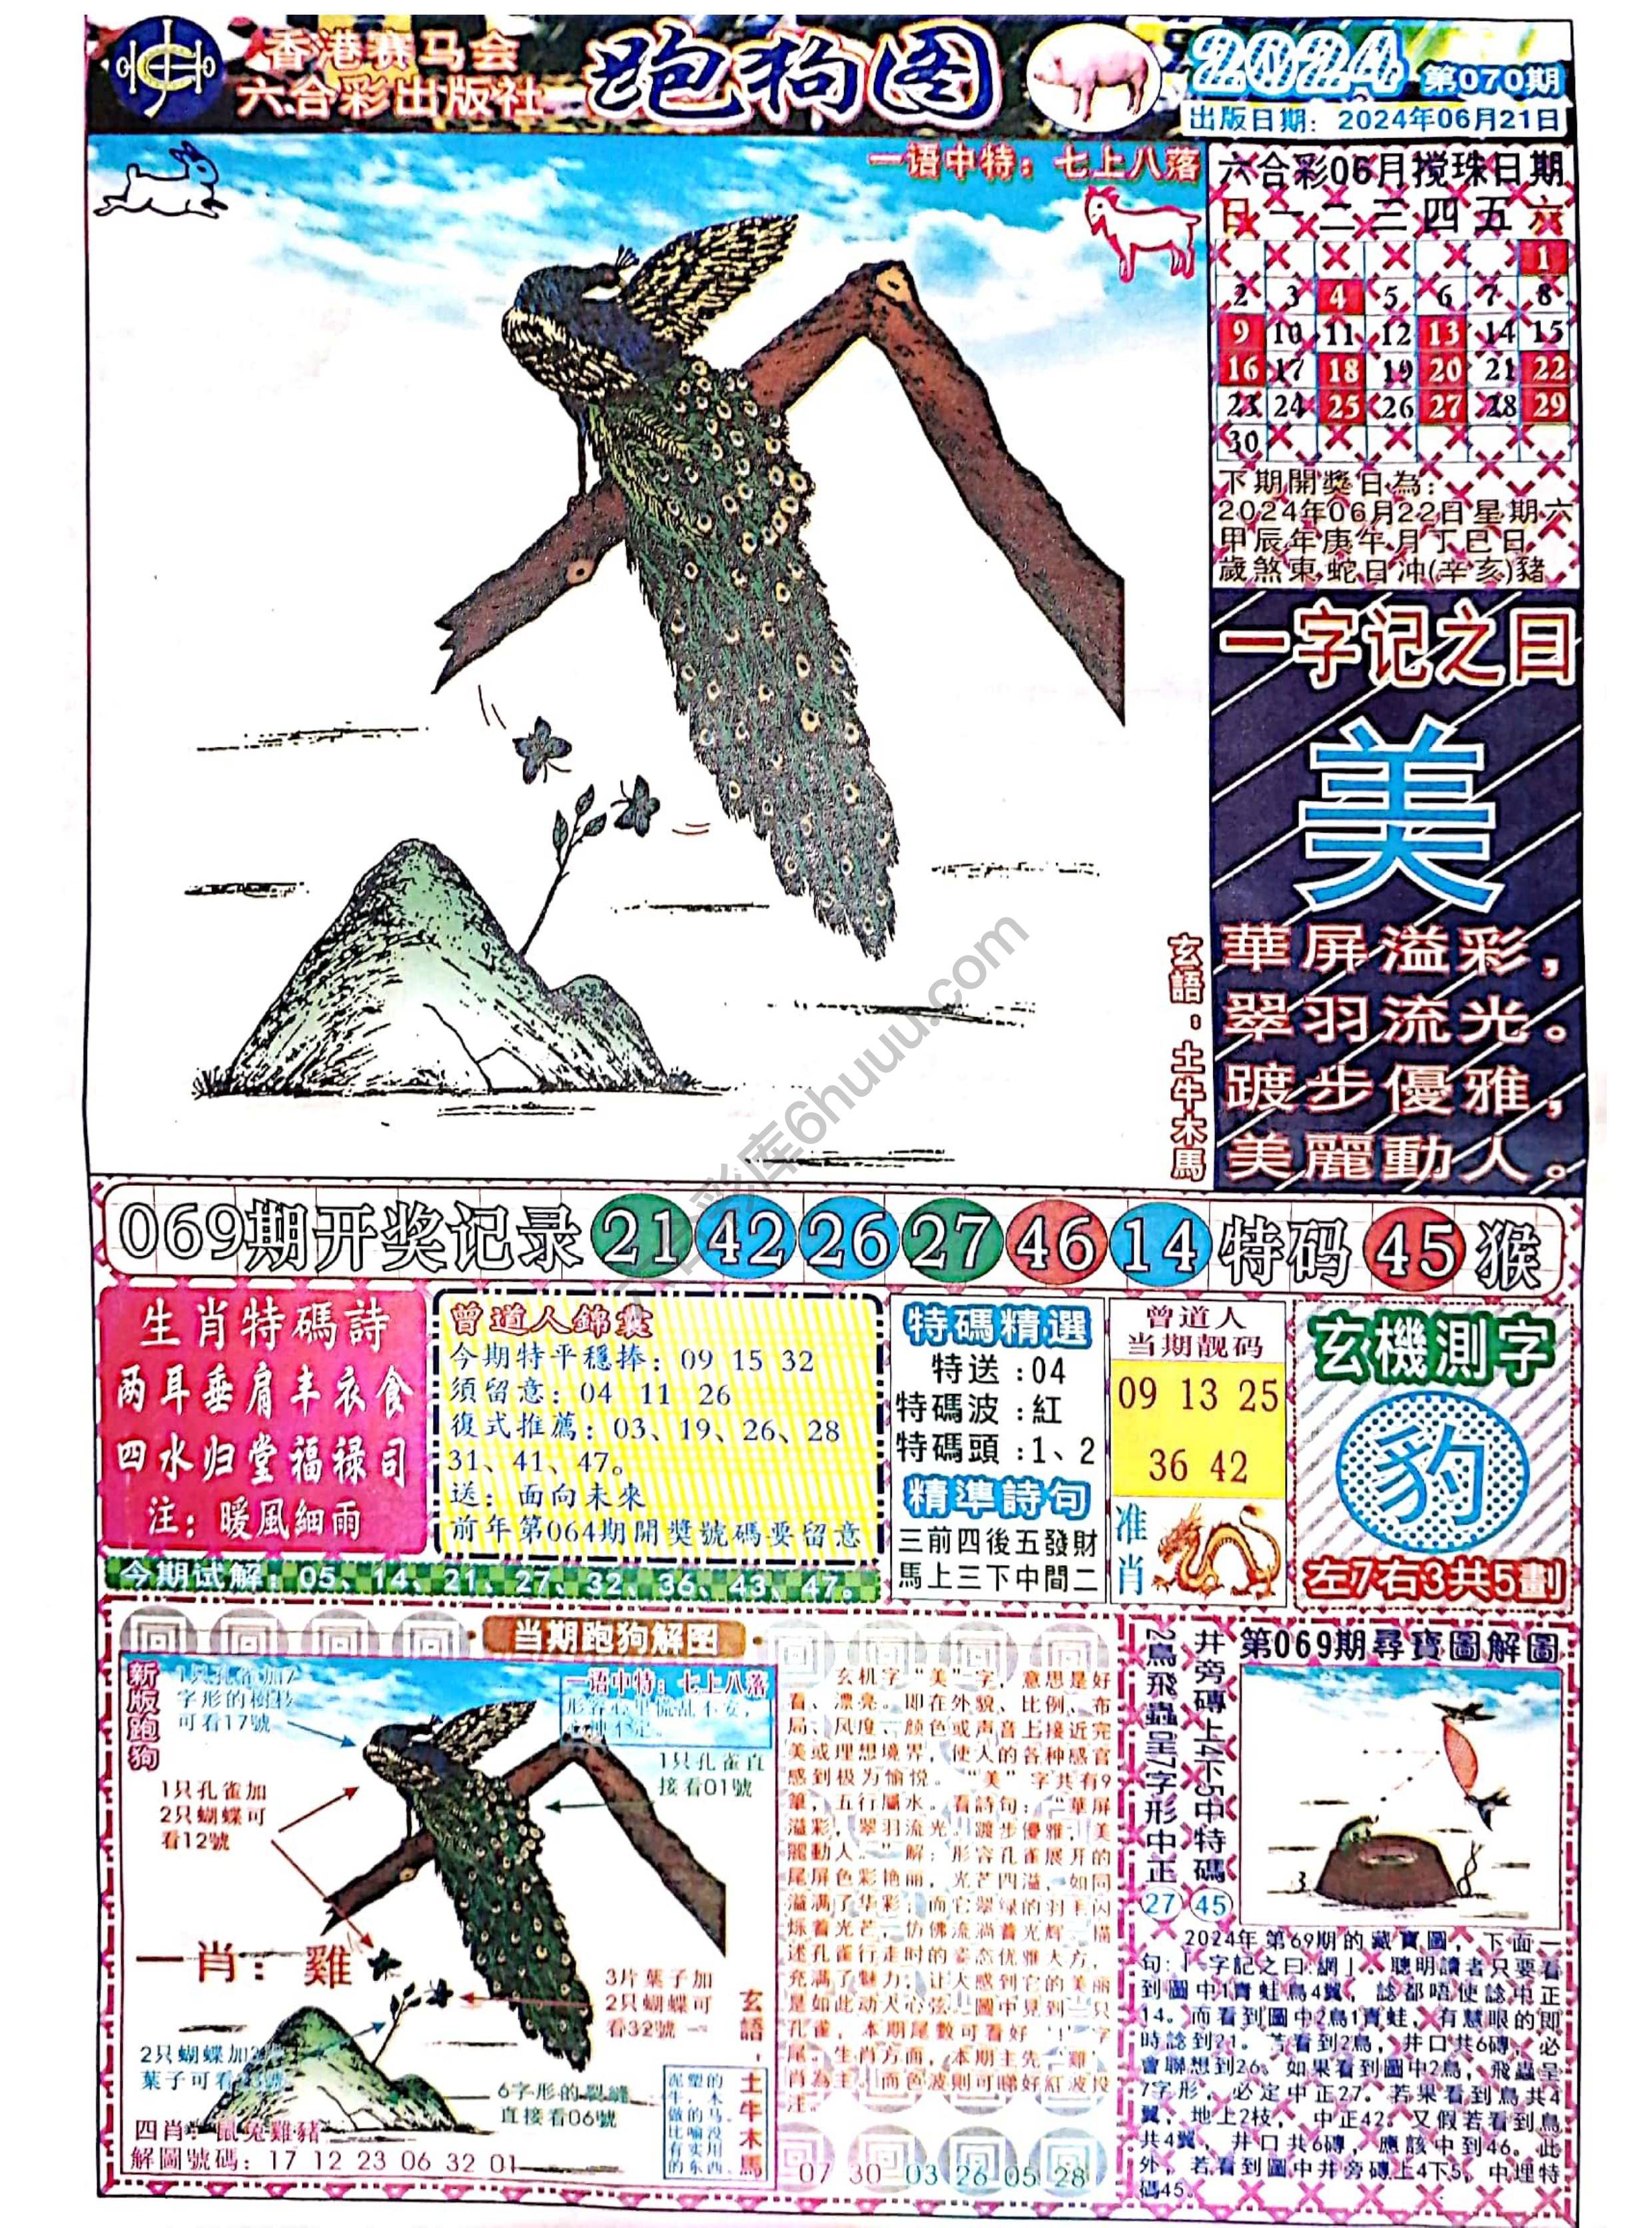 香港赛马会
六合彩出版社
跑狗图
2024
第070期
出版日期：2024年06月21日
一语中特：七上八落
六合彩06月搅珠日期
日 一 二 三 四 五 六
1
2 3 4 5 6 7 8
9 10 11 12 13 14 15
16 17 18 19 20 21 22
23 24 25 26 27 28 29
30
下期開獎日為：
2024年06月22日星期六
甲辰年庚午月丁巳日
歲煞東 蛇日冲(辛亥)豬
一字记之曰
美
華屏溢彩，
翠羽流光。
踱步優雅，
美麗動人。
玄語：土牛木馬
彩库6huuu.com
069期开奖记录 21 42 26 27 46 14 特码 45 猴
生肖特碼詩
两耳垂肩丰衣食
四水归堂福禄司
注：暖風細雨
曾道人錦囊
今期特平穩捧：09 15 32
須留意：04 11 26
復式推薦：03、19、26、28
31、41、47。
送：面向未來
前年第064期開獎號碼要留意
今期试解：05、14、21、27、32、36、43、47。
特碼精選
特送：04
特碼波：紅
特碼頭：1、2
精準詩句
三前四後五發財
馬上三下中間二
曾道人
当期靓码
09 13 25
36 42
准肖
玄機測字
豹
左7右3共5劃
当期跑狗解图
新版跑狗
1只孔雀加7
字形的樹枝
可看17號
一语中特：七上八落
形容心里慌乱不安，
心神不定。
1只孔雀直
接看01號
1只孔雀加
2只蝴蝶可
看12號
一肖：雞
3片葉子加
2只蝴蝶可
看32號
2只蝴蝶加3
葉子可看23號
6字形的裂縫
直接看06號
玄語：土牛木馬
泥塑的牛，木做的马。比喻没有实用的东西。
四肖：鼠兔雞豬
解圖號碼：17 12 23 06 32 01
玄机字“美”字，意思是好
看、漂亮。即在外貌、比例、布
局、风度、颜色或声音上接近完
美或理想境界，使人的各种感官
感到极为愉悦。“美”字共有9
筆，五行屬水。看詩句：“華屏
溢彩，翠羽流光。踱步優雅，美
麗動人。”解：形容孔雀展开的
尾屏色彩艳丽，光芒四溢，如同
溢满了华彩；而它翠绿的羽毛闪
烁着光芒，仿佛流淌着光辉。描
述孔雀行走时的姿态优雅大方，
充满了魅力，让人感到它的美丽
是如此动人心弦。圖中見到一只
孔雀，本期尾數可看好“1”字
尾。生肖方面，本期主先“雞”
肖為主。而色波則可睇好紅波投
注。
07 30 03 26 05 28
井旁磚上4下5中特碼 45
2鳥飛蟲呈7字形中正 27
第069期尋寶圖解圖
2024年第69期的藏寶圖，下面一
句：「一字記之曰：網」。聰明讀者只要看
到圖中1青蛙鳥4翼，諗都唔使諗中正
14。而看到圖中2鳥1青蛙，有慧眼的即
時諗到21。若看到2鳥，井口共6磚，必
會聯想到26。如果看到圖中2鳥，飛蟲呈
7字形，必定中正27。若果看到鳥共4
翼，地上2枝，中正42。又假若看到鳥
共4翼，井口共6磚，應該中到46。此
外，若看到圖中井旁磚上4下5，中埋特
碼45。